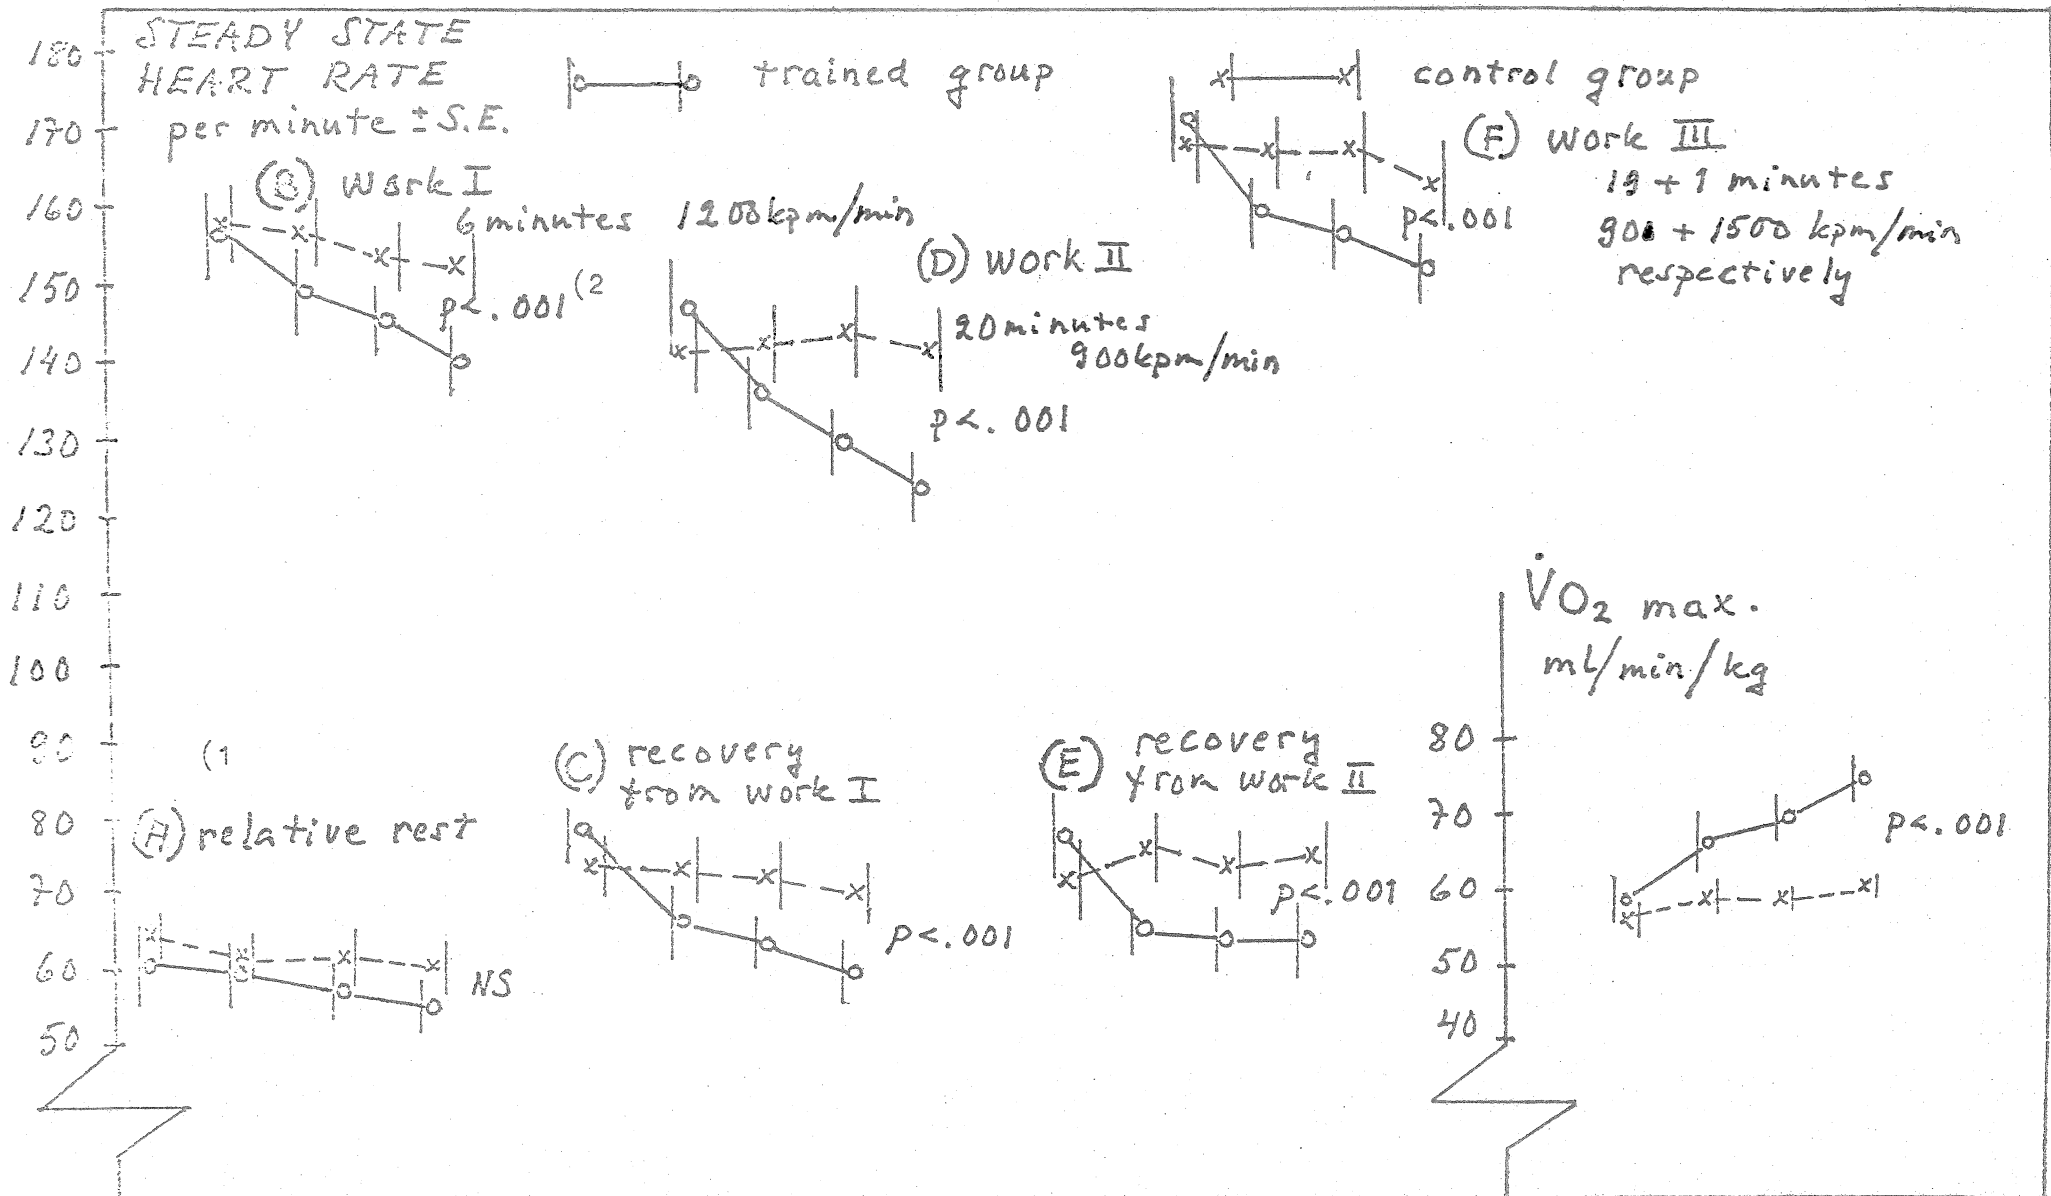 STEADY STATE
HEART RATE
per minute ± S.E.
trained group
control group
180
170
160
150
140
130
120
110
100
90
80
70
60
50
(B) Work I
6 minutes 1200kpm/min
p<.001 (2
(D) Work II
20minutes
900kpm/min
p<.001
(F) Work III
19 + 1 minutes
900 + 1500 kpm/min
respectively
p<.001
(1
(A) relative rest
NS
(C) recovery
from work I
p<.001
(E) recovery
from work II
p<.001
V̇O₂ max.
ml/min/kg
80
70
60
50
40
p<.001